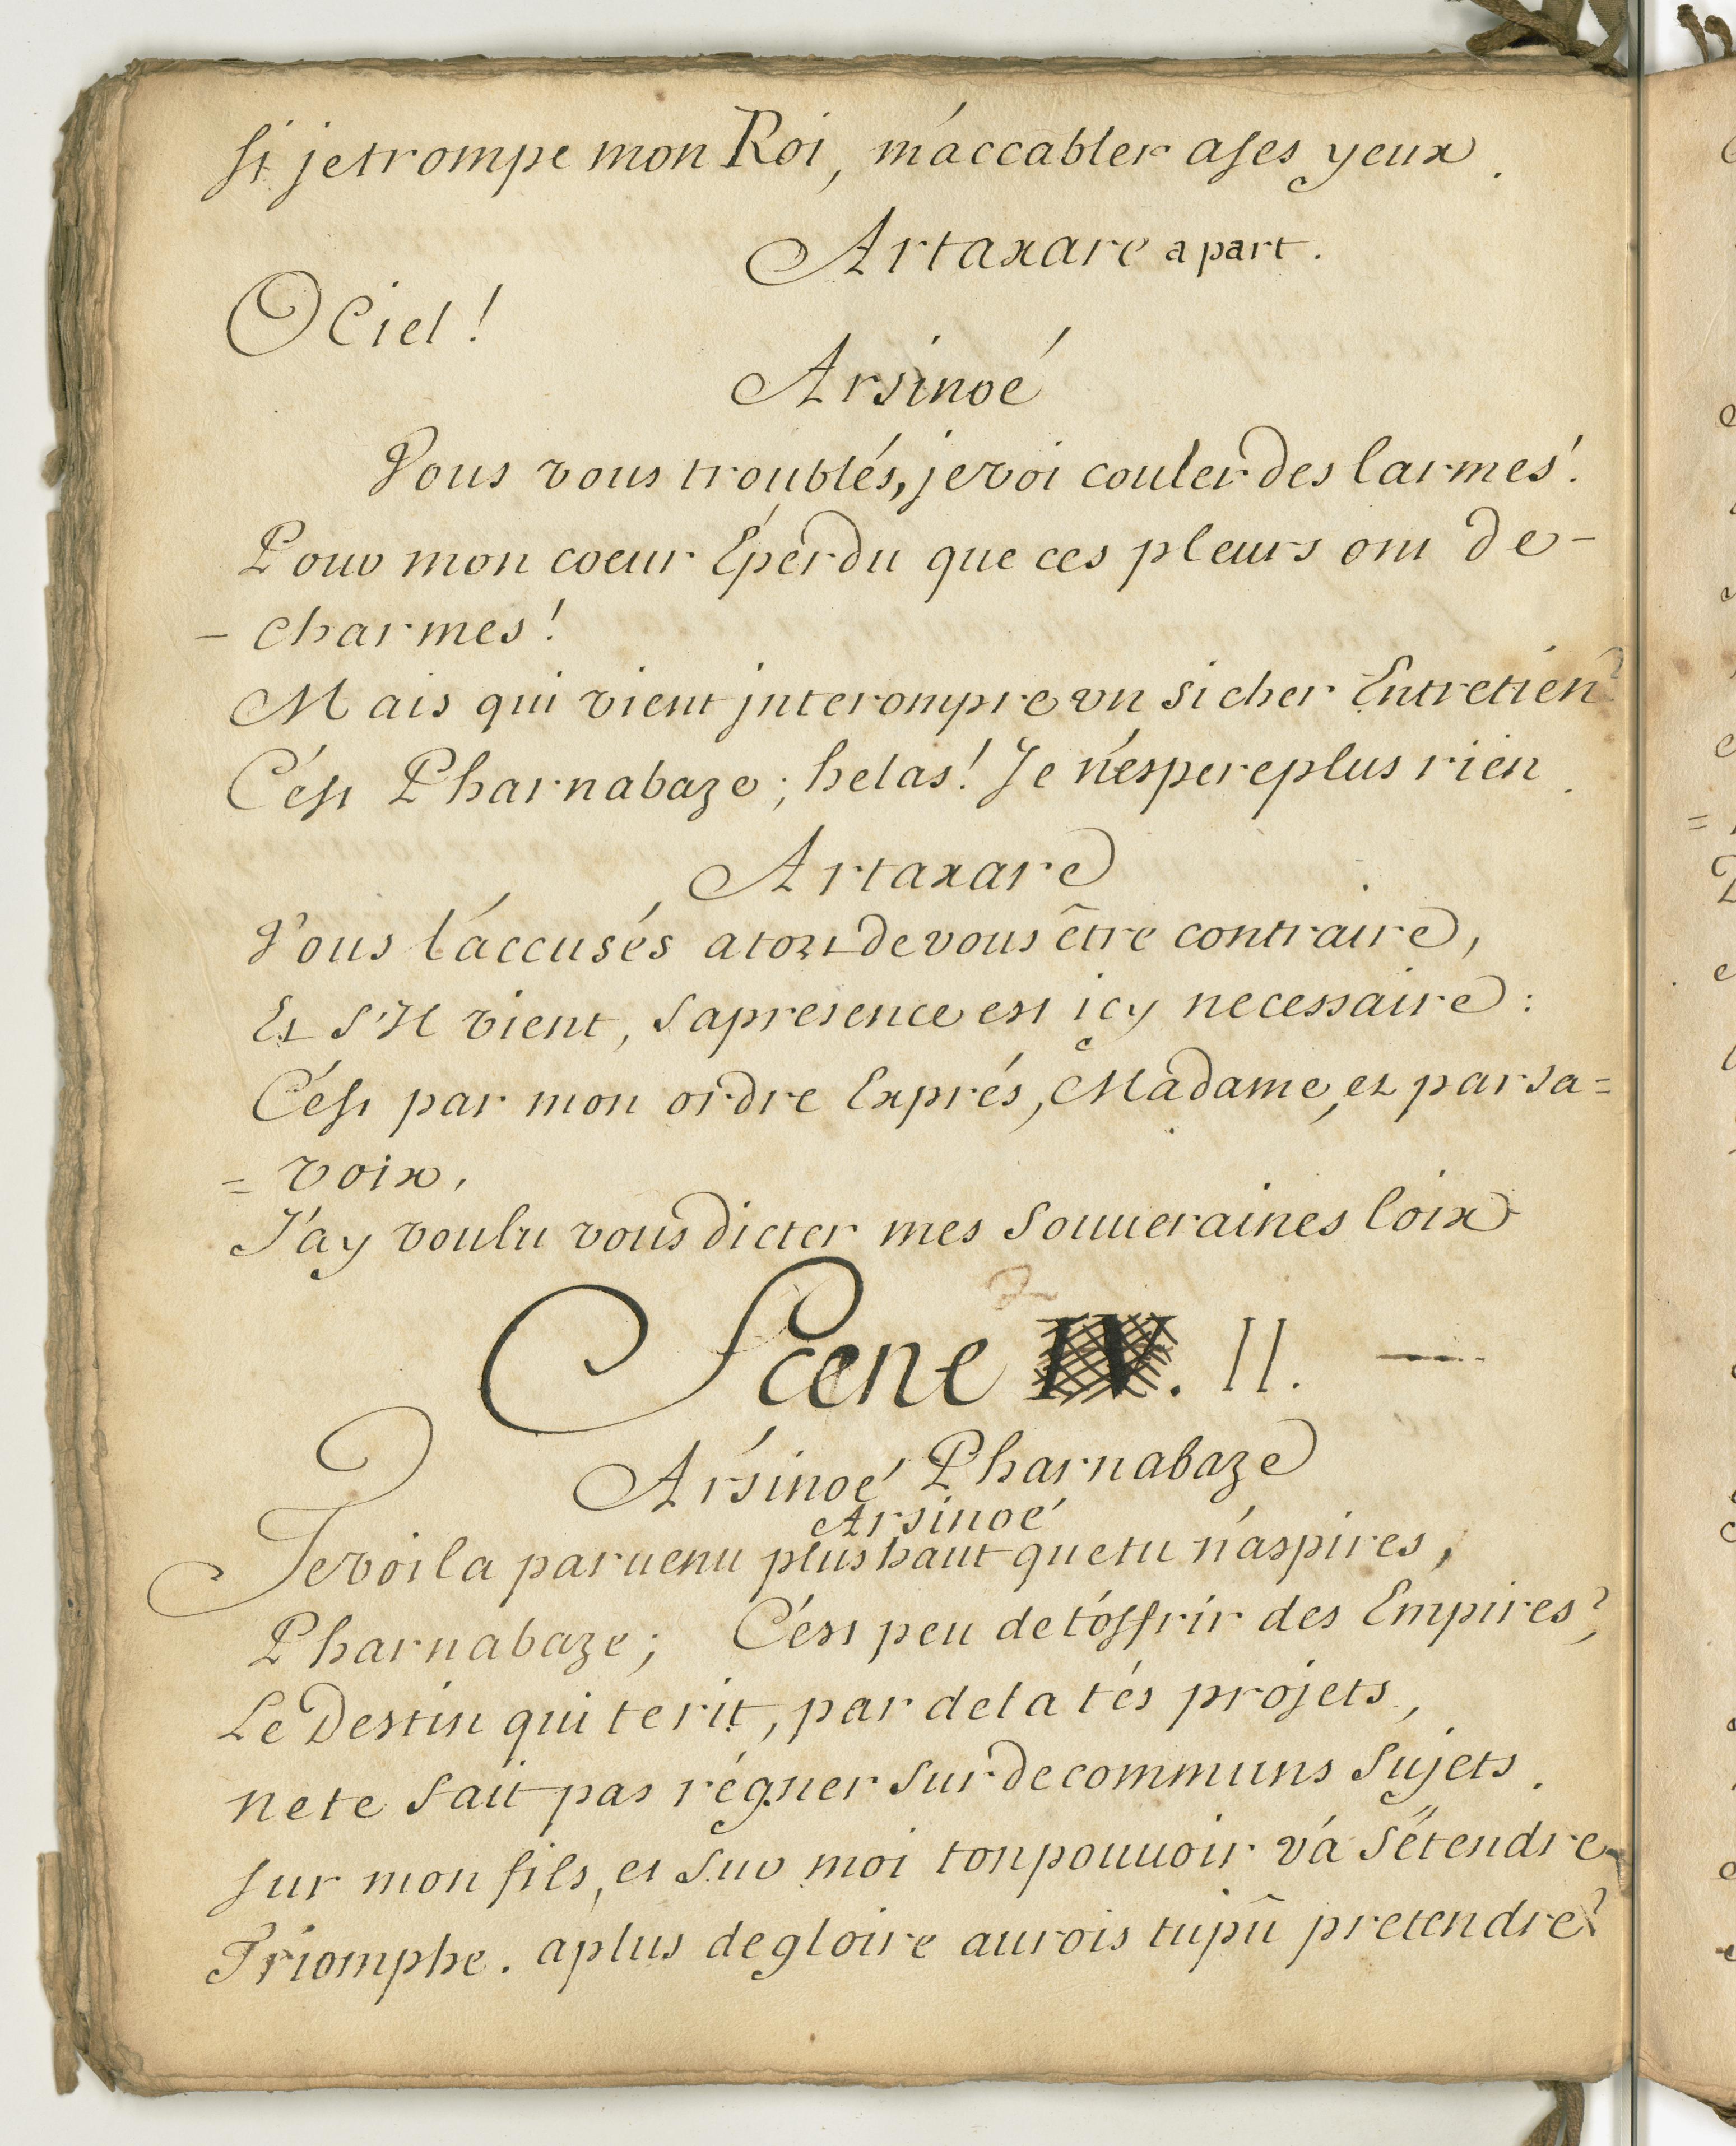 si je trompe mon Roi, m'accabler a ses yeux.
Artaxare a part.
O Ciel!
Arsinoé
Vous vous troublés, je voi couler des larmes!
Pour mon coeur Éperdu que ces pleurs ont de -
- charmes!
Mais qui vient jnterompre vn si cher Entretien?
C'est Pharnabaze; helas! Je n'espere plus rien.
Artaxare
Vous l'accusés a tort de vous être contraire,
Et S'Il vient, sa presence est icy necessaire:
C'est par mon ordre Exprés, Madame, et par sa =
= voix,
J'ay voulu vous dicter mes Souueraines loix
Scene IV. II. —
Arsinoé Pharnabaze
Arsinoé
Te voila paruenu plus haut que tu n'aspires,
Pharnabaze; C'est peu de t'offrir des Empires?
Le Destin qui te rit, par dela tés projets,
ne te fait pas régner sur de communs Sujets.
sur mon fils, et sur moi ton pouuoir vá s'étendre
Triomphe. a plus de gloire aurois tu pû pretendre?